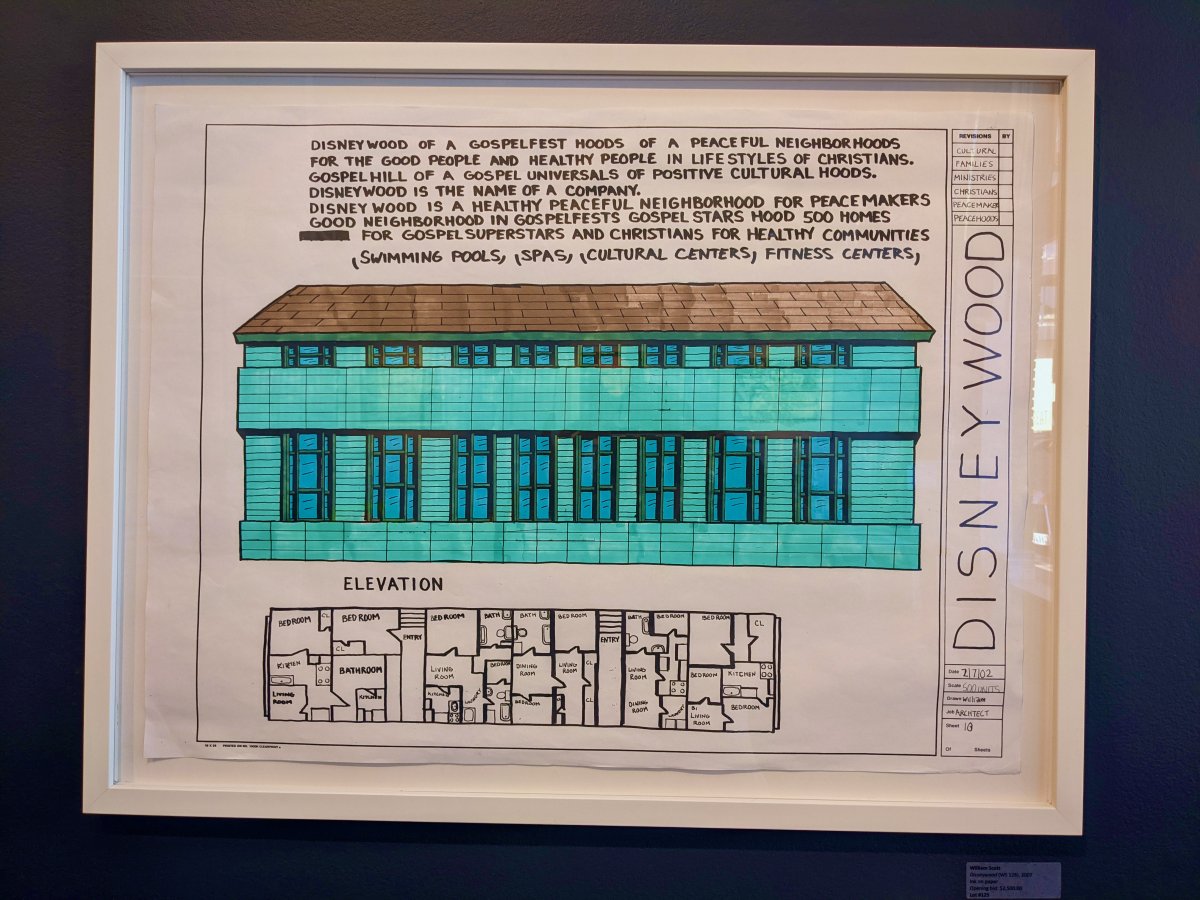 DISNEYWOOD OF A GOSPELFEST HOODS OF A PEACEFUL NEIGHBORHOODS
FOR THE GOOD PEOPLE AND HEALTHY PEOPLE IN LIFESTYLES OF CHRISTIANS.
GOSPEL HILL OF A GOSPEL UNIVERSALS OF POSITIVE CULTURAL HOODS.
DISNEYWOOD IS THE NAME OF A COMPANY.
DISNEYWOOD IS A HEALTHY PEACEFUL NEIGHBORHOOD FOR PEACEMAKERS
GOOD NEIGHBORHOOD IN GOSPELFESTS GOSPEL STARS HOOD 500 HOMES
FOR GOSPELSUPERSTARS AND CHRISTIANS FOR HEALTHY COMMUNITIES
(SWIMMING POOLS, (SPAS, (CULTURAL CENTERS, FITNESS CENTERS,
REVISIONS BY
CULTURAL
FAMILIES
MINISTRIES
CHRISTIANS
PEACEMAKER
PEACEHOODS
DISNEYWOOD
ELEVATION
BEDROOM CL BEDROOM BEDROOM BATH BATH BEDROOM BATH BEDROOM BEDROOM CL
ENTRY ENTRY
CL
KITCHEN BATHROOM LIVING ROOM BEDROOM DINING ROOM LIVING ROOM CL LIVING ROOM BEDROOM KITCHEN
LIVING ROOM KITCHEN KITCHEN BEDROOM CL DINING ROOM LIVING ROOM BEDROOM
Date 2/7/02
Scale 500 UNITS
Drawn William
Job ARCHITECT
Sheet
Of Sheets
William Scott
Disneywood
Ink on paper
Opening bid: $2,500.00
Lot #125